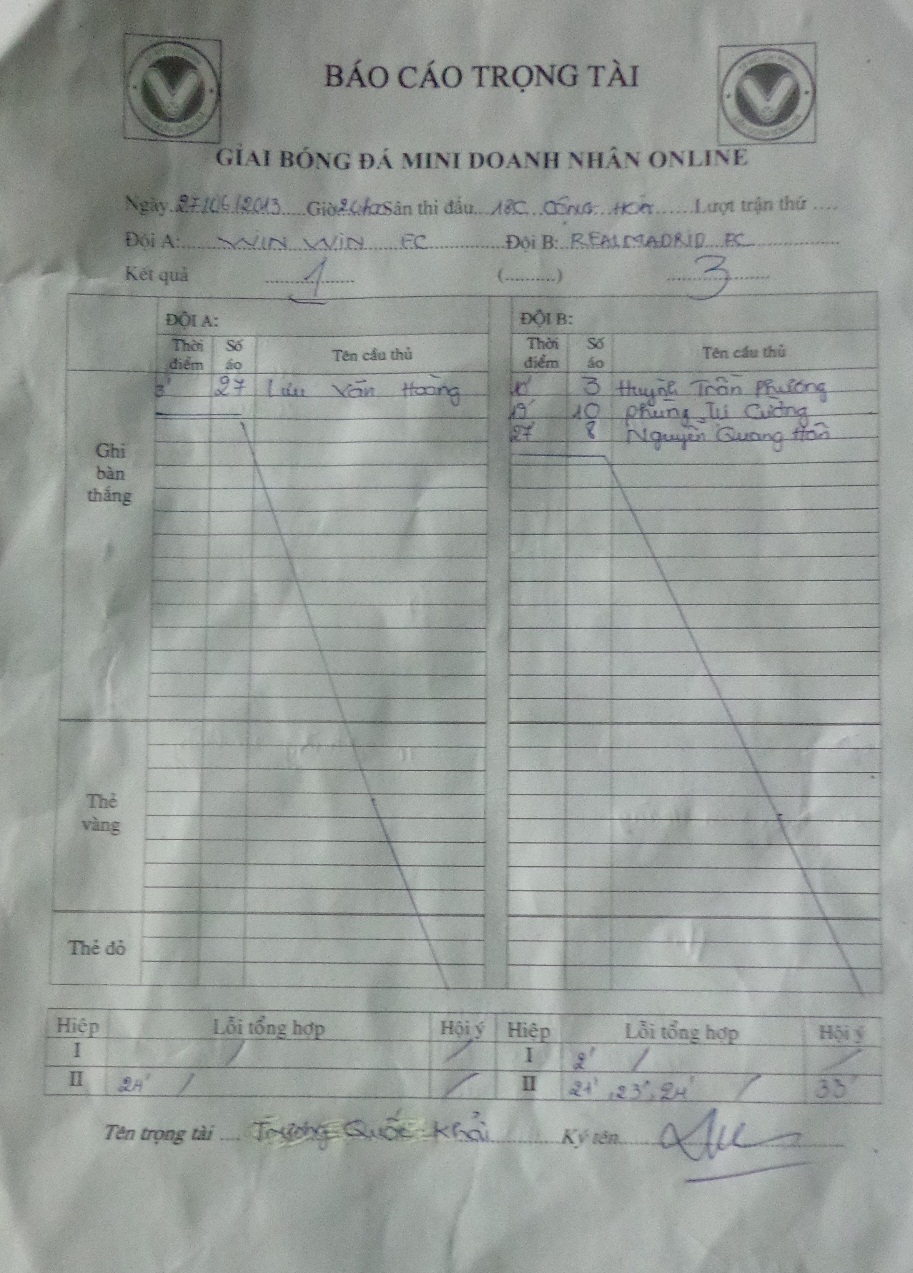 BÁO CÁO TRỌNG TÀI
GIẢI BÓNG ĐÁ MINI DOANH NHÂN ONLINE
Ngày 27/06/2013 Giờ Sân thi đấu 18C CỘNG HÒA Lượt trận thứ ....
Đội A: WIN WIN FC Đội B: REAL MADRID FC
Kết quả 1 (..........) 3
ĐỘI A: ĐỘI B:
Thời điểm Số áo Tên cầu thủ Thời điểm Số áo Tên cầu thủ
27 Lưu Văn Hoàng 3 Huỳnh Trần Phương
10 Phùng Tự Cường
27 8 Nguyễn Quang Hân
Ghi bàn thắng
Thẻ vàng
Thẻ đỏ
Hiệp Lỗi tổng hợp Hội ý Hiệp Lỗi tổng hợp Hội ý
I / / I 2' / /
II 24' / / II 21', 23', 24' / 33'
Tên trọng tài .... Trương Quốc Khải Ký tên